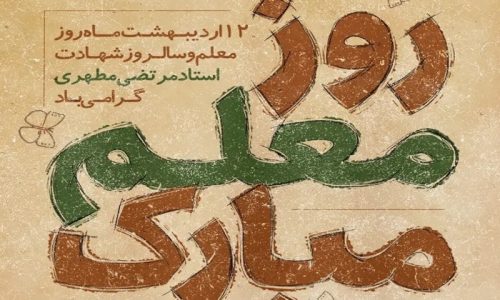 ۱۲ اردیبهشت ماه روز
معلم و سالروز شهادت
استاد مرتضی مطهری
گرامی باد
روز
معلم
مبارک